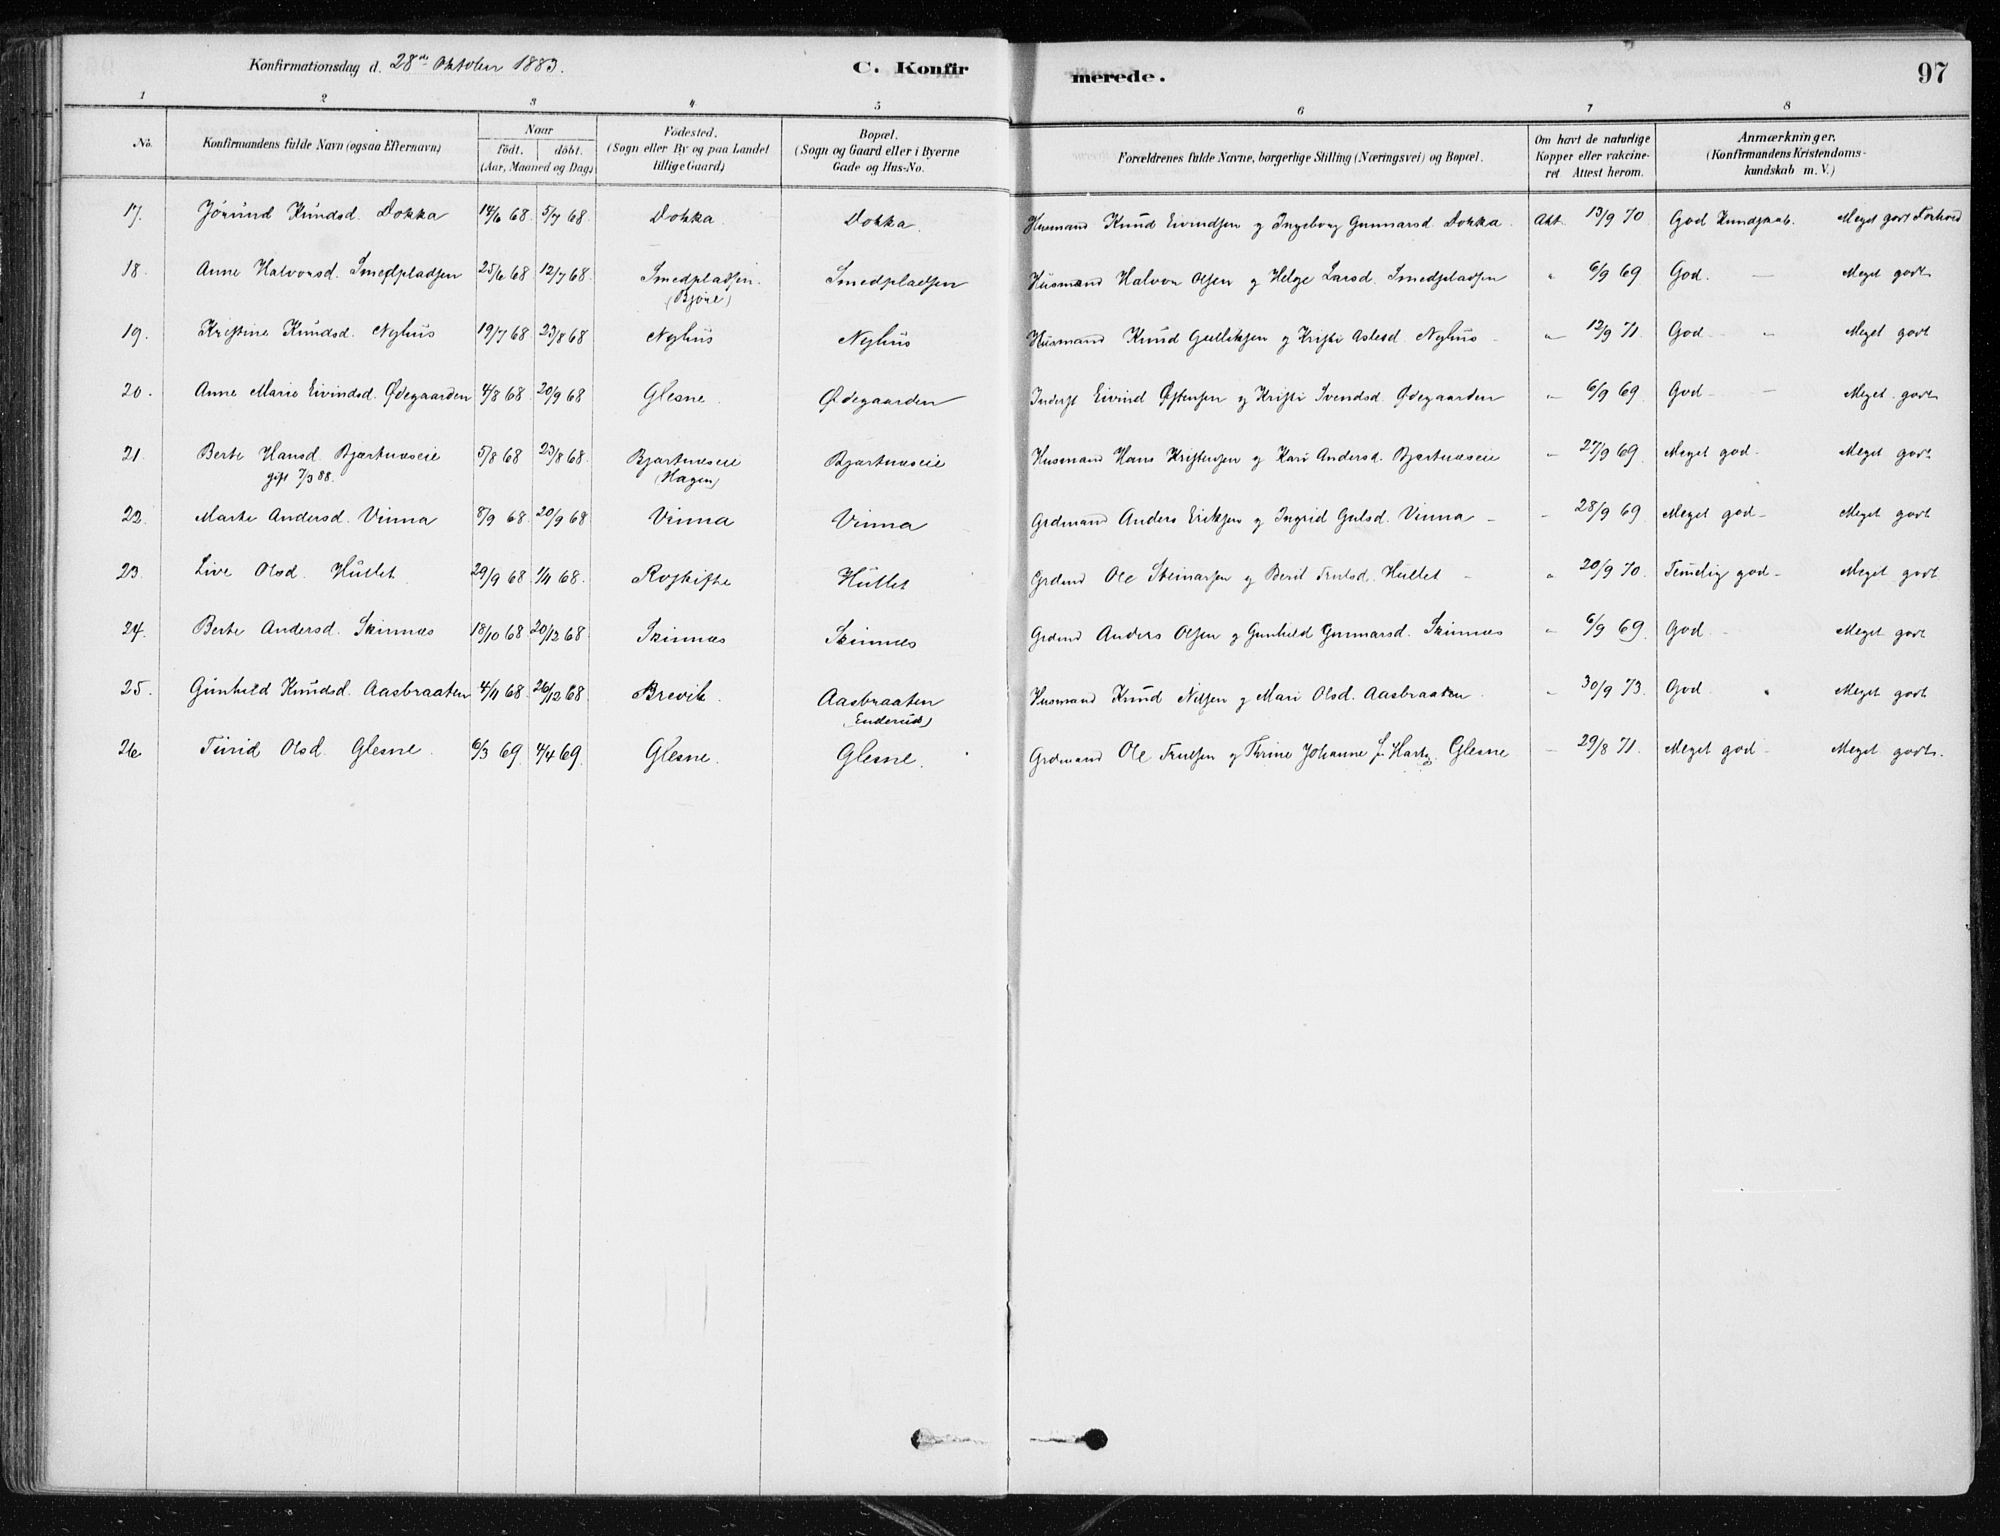 Konfirmationsdag d. 28de Oktober 1883. C. Konfir merede. 97
1 2 3 4 5 6 7 8
No. Konfirmandens fulde Navn (ogsaa Efternavn) Naar født. døbt. (Aar, Maaned og Dag) Fødested. (Sogn eller By og paa Landet tillige Gaard) Bopæl. (Sogn og Gaard eller i Byerne Gade og Hus-No. Forældrenes fulde Navne, borgerlige Stilling (Næringsvei) og Bopæl. Om havt de naturlige Kopper eller vakcineret Attest herom. Anmærkninger. (Konfirmandens Kristendomskundskab m. V.)
17. Jörund Knudsd. Dokka 14/6 68 5/7 68. Dokka. Dokka. Husmand Knud Eivindsen og Ingeborg Gunnarsd. Dokka. Akt. 13/9 70 God Kundskab. Meget godt Forhold
18. Anne Halvorsd. Smedpladsen 25/6 68 12/7 68. Smedpladsen. Smedpladsen Husmand Halvor Olsen og Helge Larsd. Smedpladsen " 6/9 69 God. — Meget godt
(Björe)
19. Kristine Knudsd. Nyhus 19/7 68 23/8 68 Nyhus Nyhus Husmand Knud Gulliksen og Kristi Aslesd. Nyhus - " 12/9 71. God - " Meget godt
20. Anne Marie Eivindsd. Ødegaarden 4/8 68 20/9 68 Glesne. Ødegaarden Inderst Eivind Østensen og Kristi Svendsd. Ødegaarden " 6/9 69. God - — Meget godt
21. Berte Hansd. Bjertnæseie 5/8 68 23/8 68 Bjertnæseie Bjertnæseie Husmand Hans Kristensen og Kari Andersd. Bjertnæseie " 27/9 69. Meget god - Meget godt
gift 7/3 88. (Hagen)
22. Marte Andersd. Vinna 8/9 68 20/9 68 Vinna Vinna Grdmand Anders Eriksen og Ingrid Gulsd. Vinna - " 28/9 69. Meget god - Meget godt
23. Live Olsd. Hullet 29/9 68 1/11 68. Hullet Grdmd Ole Steinarsen og Berit Trulsd. Hullet - " 20/9 70. Temelig god - Meget godt
24. Berte Andersd. Skinnes 18/10 68 20/12 68 Skinnes Skinnes Grdmd Anders Olsen og Gunhild Gunnarsd. Skinnes " 6/9 69. God - Meget godt
25. Gunhild Knudsd. Aasbraaten 4/11 68 26/12 68 Brevik. Aasbraaten Husmand Knud Nilsen og Mari Olsd. Aasbraaten. " 30/9 73. God. " Meget godt
(Enderud)
26 Turid Olsd. Glesne. 6/3 69 4/4 69. Glesne. Glesne. Grdmand Ole Trulsen og Thrine Johanne f. Hartz. Glesne - 29/8 71. Meget god - Meget godt.